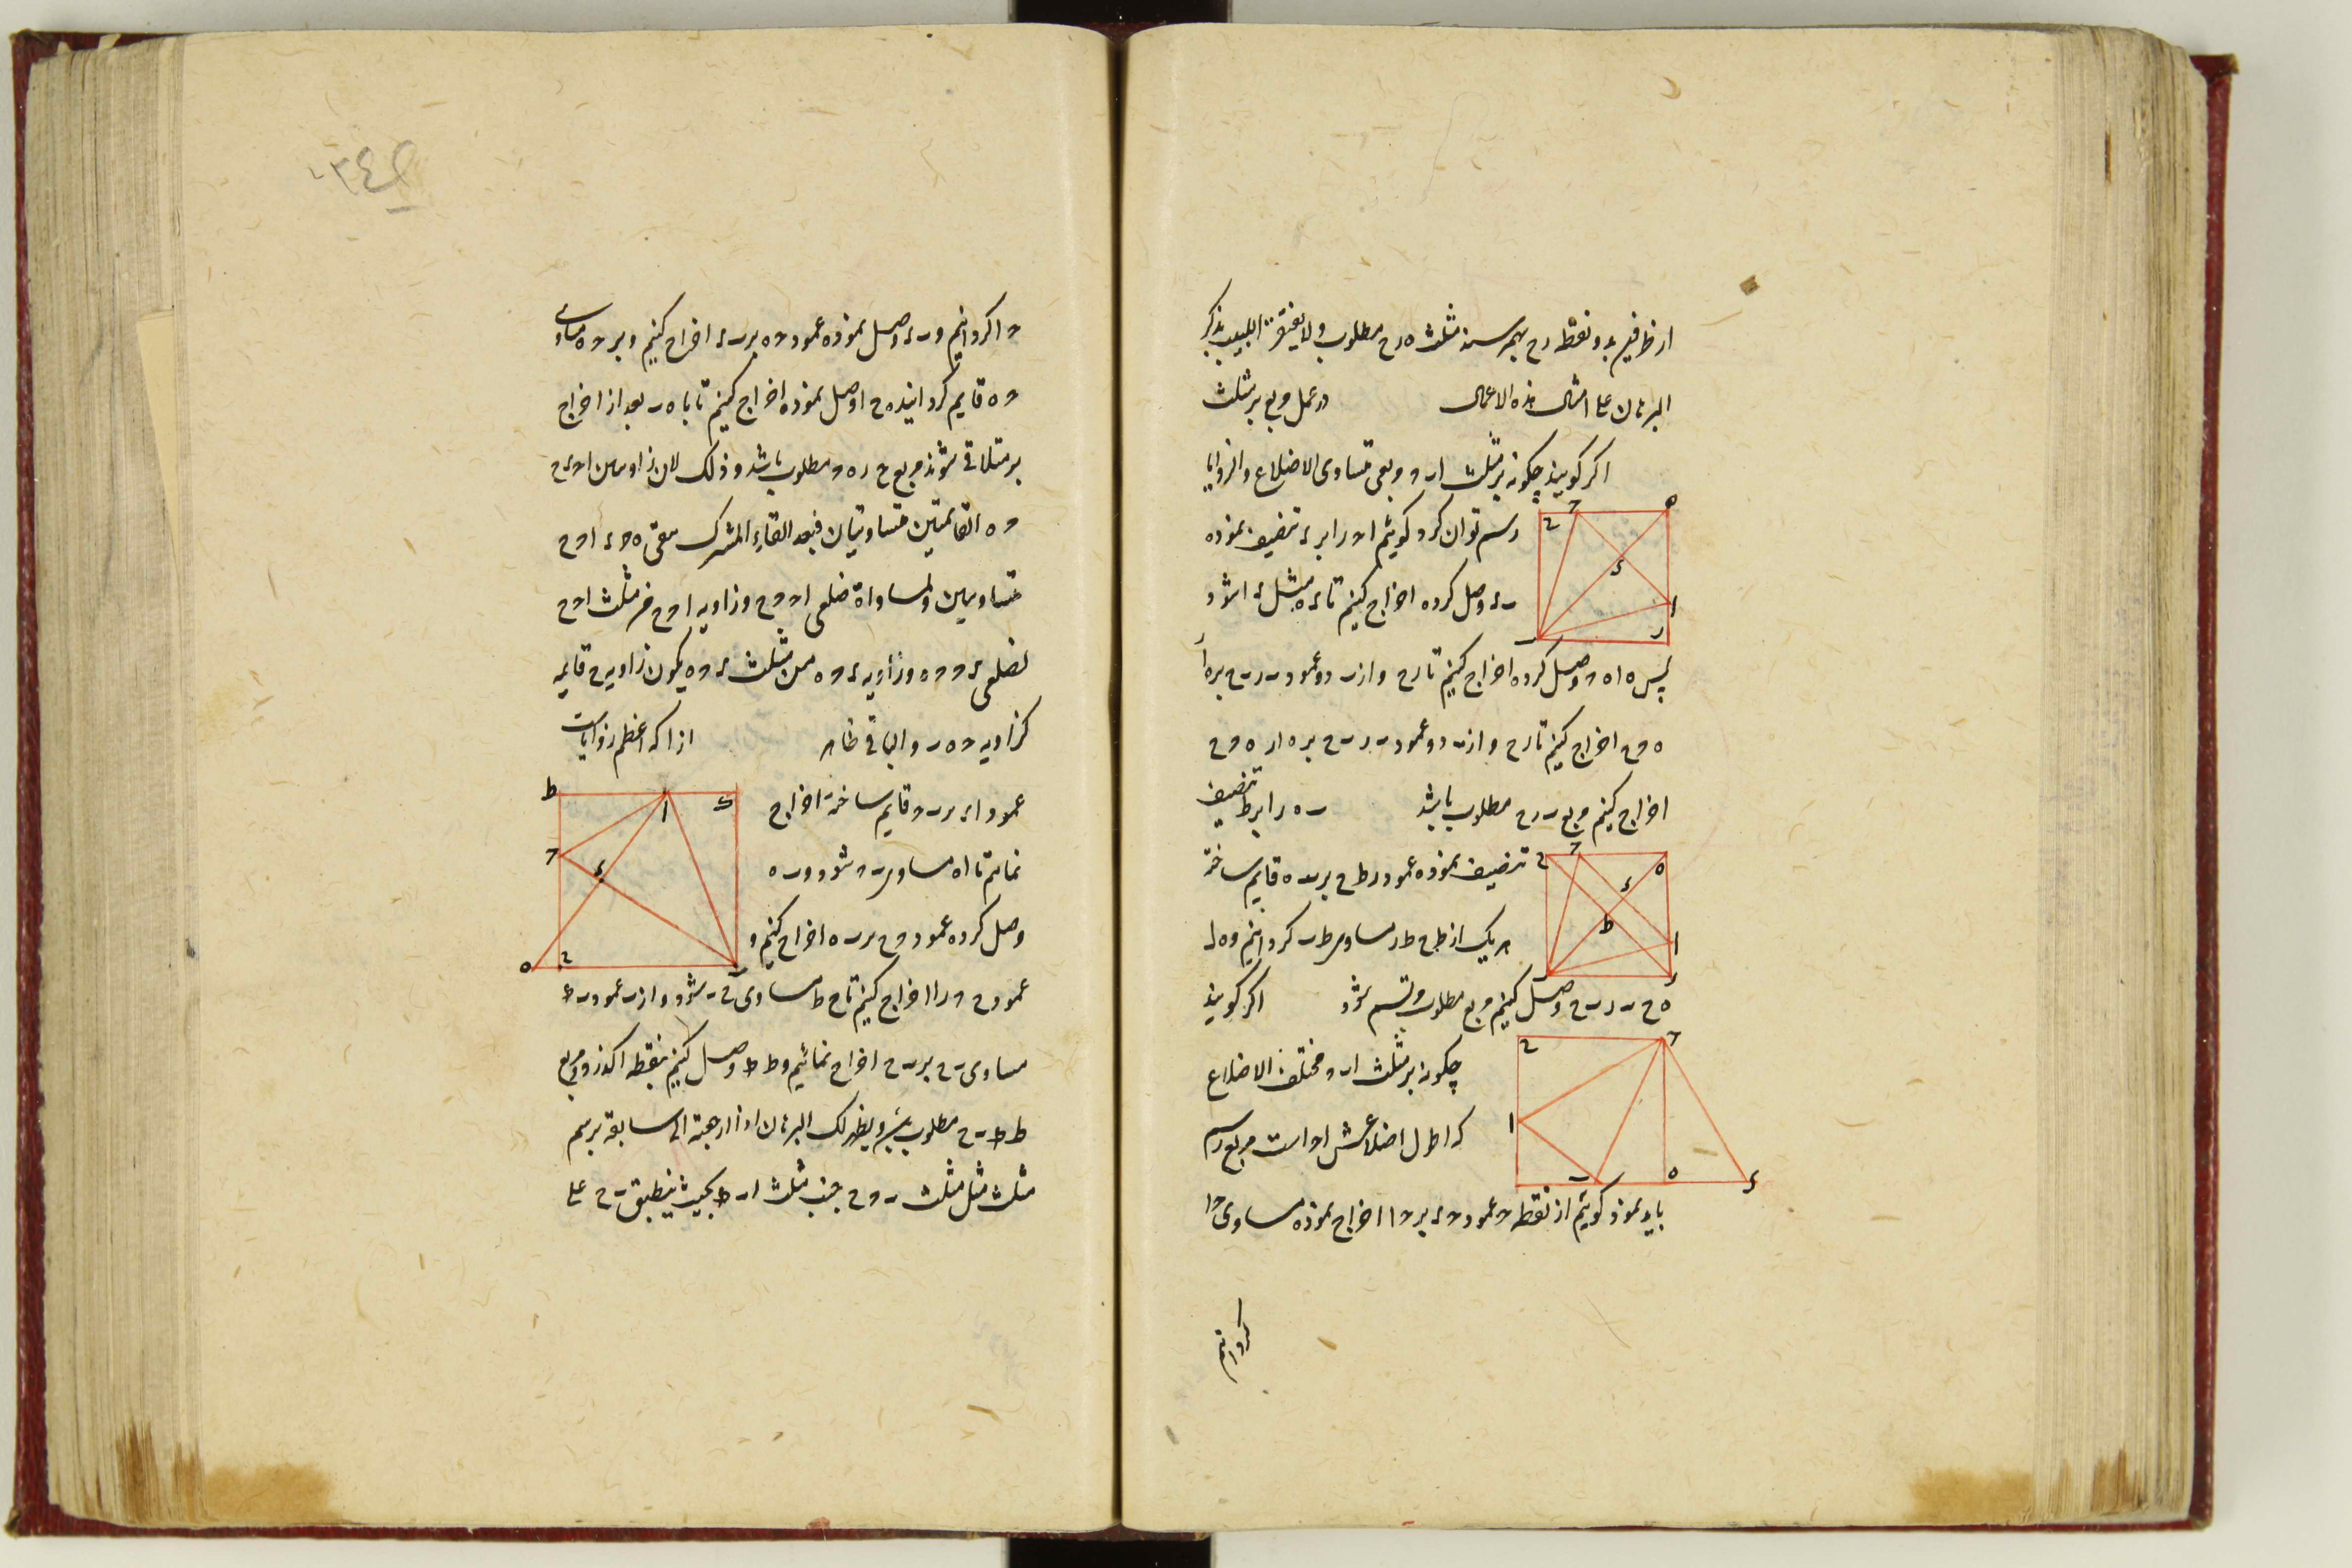 از طرفین بدو نقطه رح بهم رسند مثلث ه رح مطلوب ولا یفتقر اللبیب بذکر
البرهان علی امثال هذه الاعمال در عمل مربع بر مثلث
اگر گویند چگونه بر مثلث ا ب ح مربعی متساوی الاضلاع والزوایا
رسم توان کرد گوئیم ا ح را بر ء تنصیف نموده
ب ء وصل کرده اخراج کنیم تا ء ه مثل ء ا شود
پس ه ا ه ح وصل کرده اخراج کنیم تا رح و از ب دو عمود ب ر ب ح بر ه ا
ه ح اخراج کنیم تا رح و از ب دو عمود ب ر ب ح بر ه ا ر ه ح ح
اخراج کنیم مربع ب رح مطلوب باشد ب ه را بر ط تنصیف
تنصیف نموده عمود ر ط ح بر ب ه قایم ساخته
هر یک از ط ح ط ر مساوی ط ب گردانیم و ه ر
ه ح ب ر ب ح وصل کنیم مربع مطلوب رسم شود اگر گویند
چگونه بر مثلث ا ب ح مختلف الاضلاع
که اطول اضلاعش ا ح است مربع رسم
باید نمود گوئیم از نقطه ح عمود ح ء بر ح ا اخراج نموده مساوی ح ا
گردانیم
ح ا گردانیم و ب ء وصل نموده عمود ح ه بر ب ء اخراج کنیم و بر ح ه مساوی
ح ه قایم گردانیده ح ا وصل نموده اخراج کنیم تا با ه ب بعد از اخراج
بر متلاقی شوند مربع ح ر ه ح مطلوب باشد و ذلک لان زاویتین ا ح ء ح
ح ه القائمتین متساویتان فبعد القاء المشترک یبقی ه ح ء ا ح ح
متساویین ولمساواة ضلعی ا ح ح ح وزاویه ا ح ح من مثلث ا ح ح
لضلعی ء ح ح ه وزاویه ء ح ه من مثلث ء ح ه یکون زاویه ح قایمه
کزاویه ح ه ب والباقی ظاهر از ا که اعظم زوایاست
عمود ا ء بر ب ح قایم ساخته اخراج
نمائیم تا ا ه مساوی ب ح شود و ب ه
وصل کرده عمود ح ح بر ب ه اخراج کنیم و
عمود ح ح را اخراج کنیم تا ح ط مساوی ح ب شود و از ب عمود ب ط
مساوی ب ح بر ب ح اخراج نمائیم و ط ط وصل کنیم بنقطه ا گذرد و مربع
ط ط ب ح مطلوب باشد ویظهر لک البرهان اذا رجعت الی سابقه برسم
مثلث مثل مثلث ب ح ح جنب مثلث ا ب ط بحیث ینطبق ب ح علی